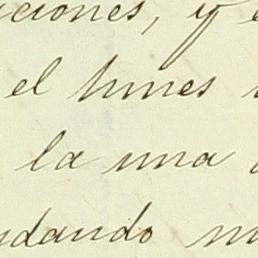 ciones, y e
el lunes
la una a
dando